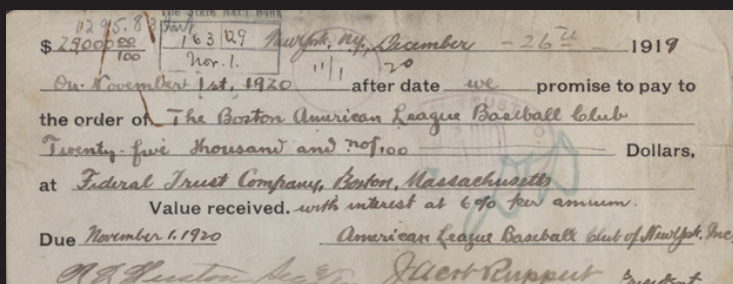 1295.83
The State Nat'l Bank
$25,000 00/100 163129 New York, N.Y., December - 26th - 1919
Nov. 1. 11/1 20
On November 1st, 1920 after date we promise to pay to
the order of The Boston American League Baseball Club
Twenty-five thousand and no/100 Dollars,
at Federal Trust Company, Boston, Massachusetts
Value received. with interest at 6% per annum.
Due November 1. 1920 American League Baseball Club of New York, Inc.
Jacob Ruppert President